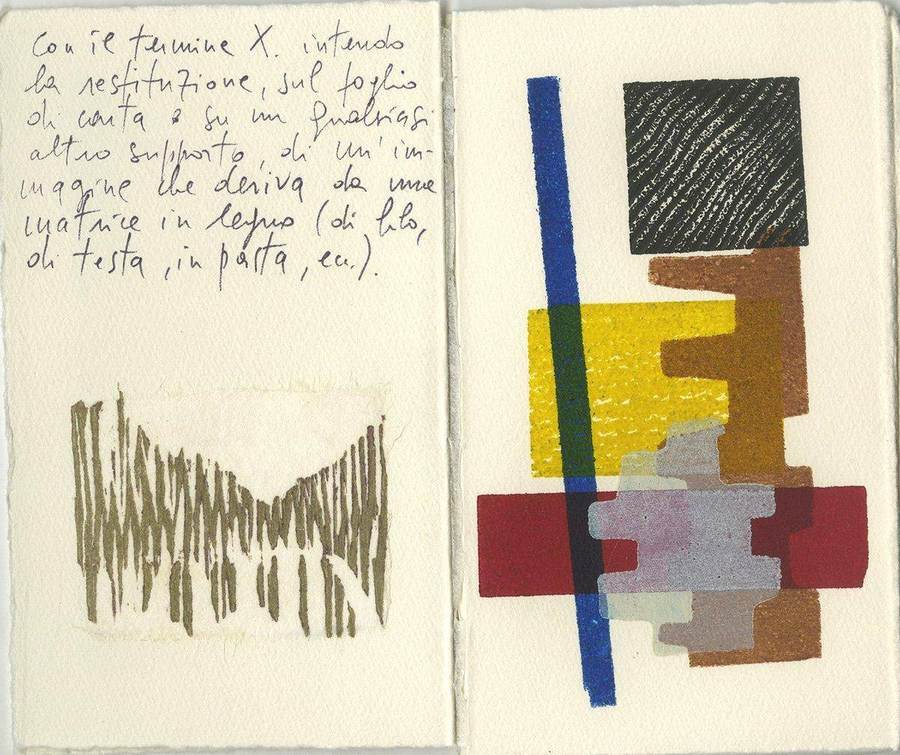 Con il termine X. intendo
la restituzione, sul foglio
di carta o su un qualsiasi
altro supporto, di un'im-
magine che deriva da una
matrice in legno (di filo,
di testa, in pasta, ecc.).